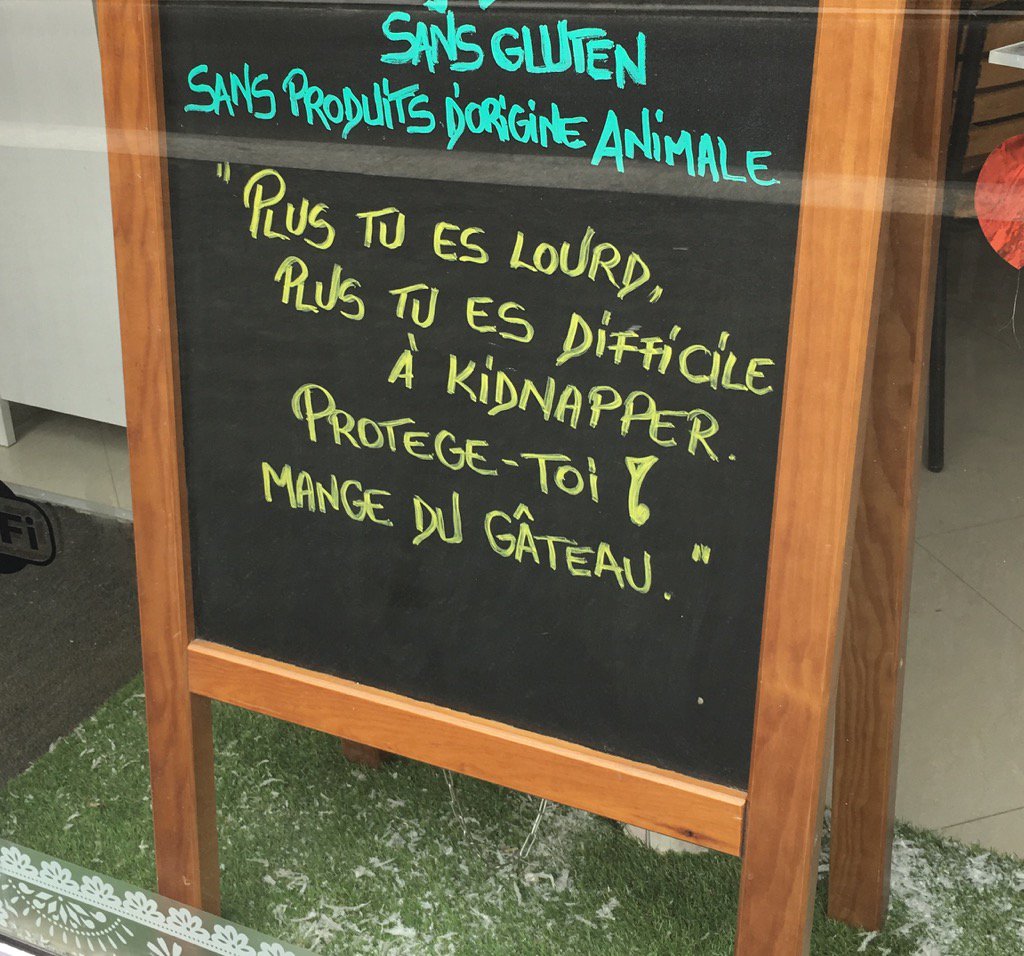 SANS GLUTEN
SANS PRODUITS D'ORIGINE ANIMALE
"PLUS TU ES LOURD,
PLUS TU ES DIFFICILE
À KIDNAPPER.
PROTEGE-TOI !
MANGE DU GÂTEAU."
Fi